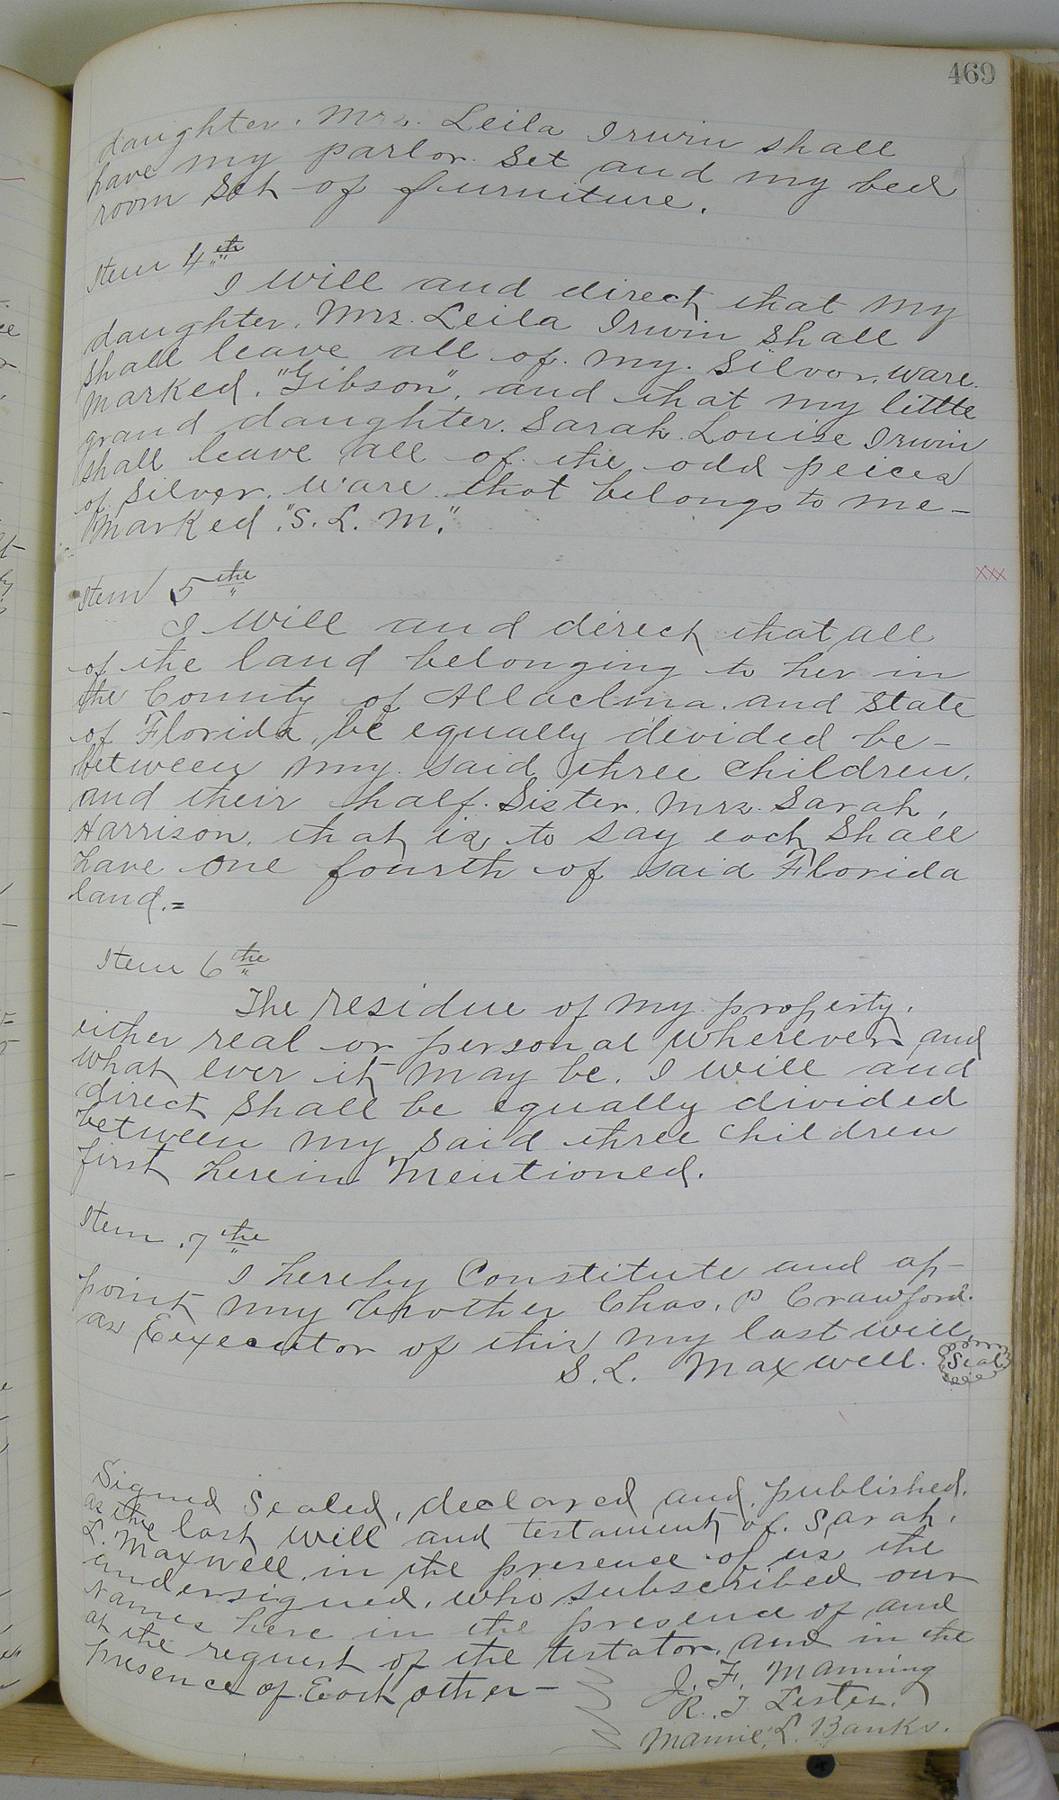 469
daughter. Mrs. Leila Irwin shall
have my parlor set and my bed
room set of furniture.
Item 4th
I will and direct that my
daughter. Mrs. Leila Irwin shall
shall leave all of my Silver, ware.
Marked. "Gibson", and that my little
grand daughter. Sarah Louise Irwin
shall leave all of the odd peices
of Silver. ware that belongs to me -
Marked "S. L. M."
Item 5the
I will and direct that all
of the land belonging to her in
the County of Allachna. and State
of Florida, be equally divided be-
between my said three children,
and their half. Sister. Mrs. Sarah,
Harrison, that is, to say each shall
have one fourth of said Florida
land. =
xxx
Item 6the
The residue of my property.
either real or personal wherever and
what ever it may be. I will and
direct shall be equally divided
between my said three children
first herein Mentioned.
Item. 7the
I hereby Constitute and ap-
point my brother Chas. P Crawford.
as Eixecutor of this my last will,
S. L. Maxwell. Seal
Signed Sealed, declared and published.
as the last will and testament of. Sarah.
L. Maxwell in the presence of us the
undersigned, who subscribed our
Names here in the presence of and
at the request of the testator, and in the
presence of Each other -
J. F. Manning
R. T Lester.
Mamie. L. Banks.